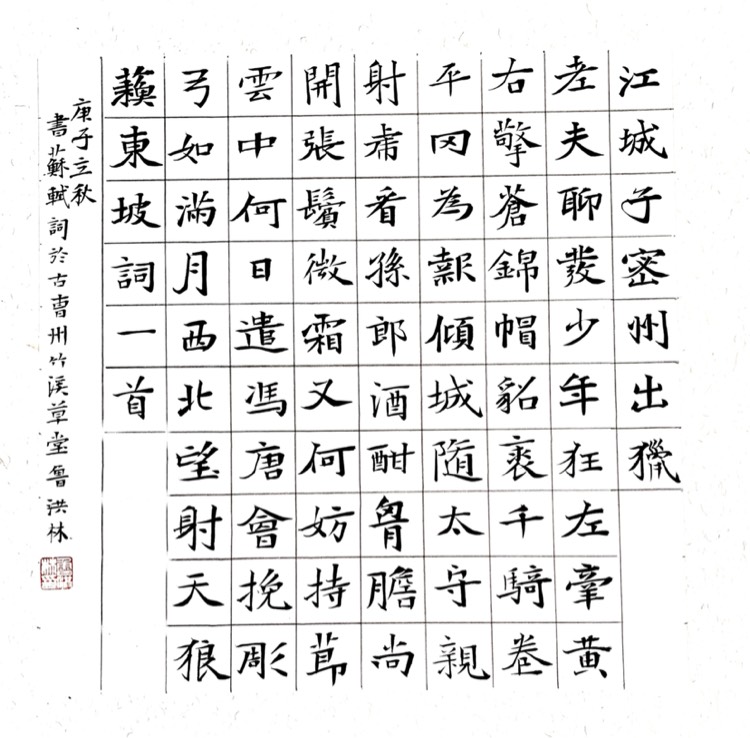 江城子密州出獵
老夫聊發少年狂左牽黃
右擎蒼錦帽貂裘千騎卷
平岡為報傾城隨太守親
射虎看孫郎酒酣胷膽尚
開張鬢微霜又何妨持節
雲中何日遣馮唐會挽彫
弓如滿月西北望射天狼
蘇東坡詞一首
庚子立秋
書蘇軾詞於古曹州竹溪草堂魯洪林